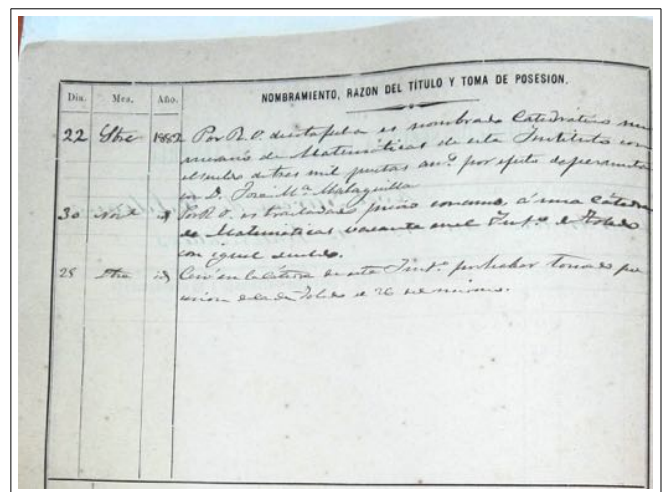 Dia. Mes. Año. NOMBRAMIENTO, RAZON DEL TÍTULO Y TOMA DE POSESION.
22 1882 Por R. O. de esta fecha es nombrado Catedrático nu
merario de Matemáticas de este Instituto con
el sueldo de tres mil pesetas an.s por efecto de permuta
con D. José Mª Malaguilla
30 id Por R. O. es trasladado previo concurso á una Cátedra
de Matemáticas vacante en el Inst.o de Toledo
con igual sueldo.
25 id Cesó en la Cátedra de este Inst.o por haber tomado po
sesion de la de Toledo el 26 del mismo.